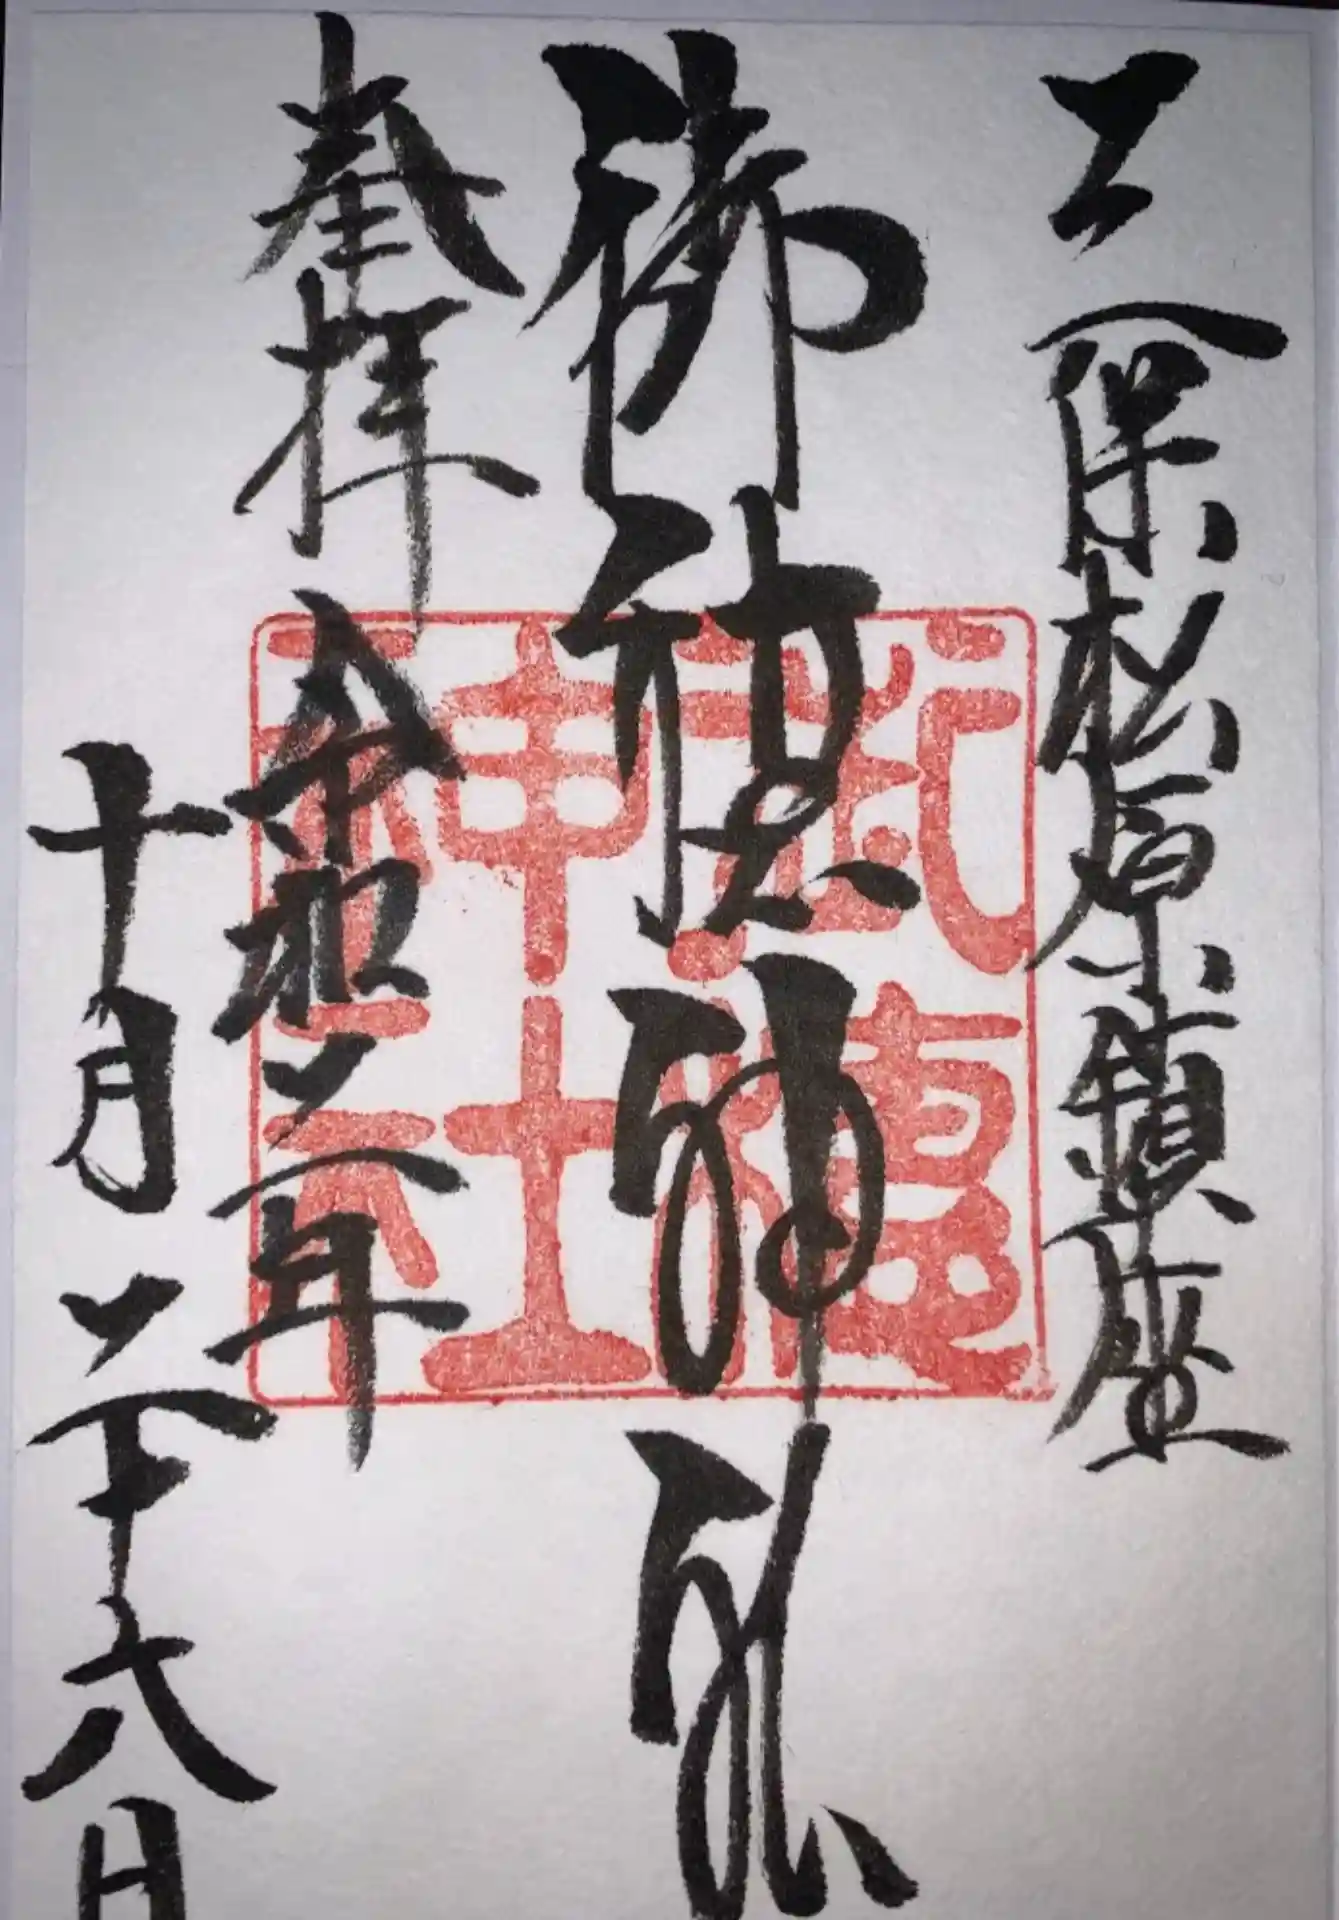 三保松原鎮座
御穂神社
奉拝 令和二年
十月二十六日
御穗
神社